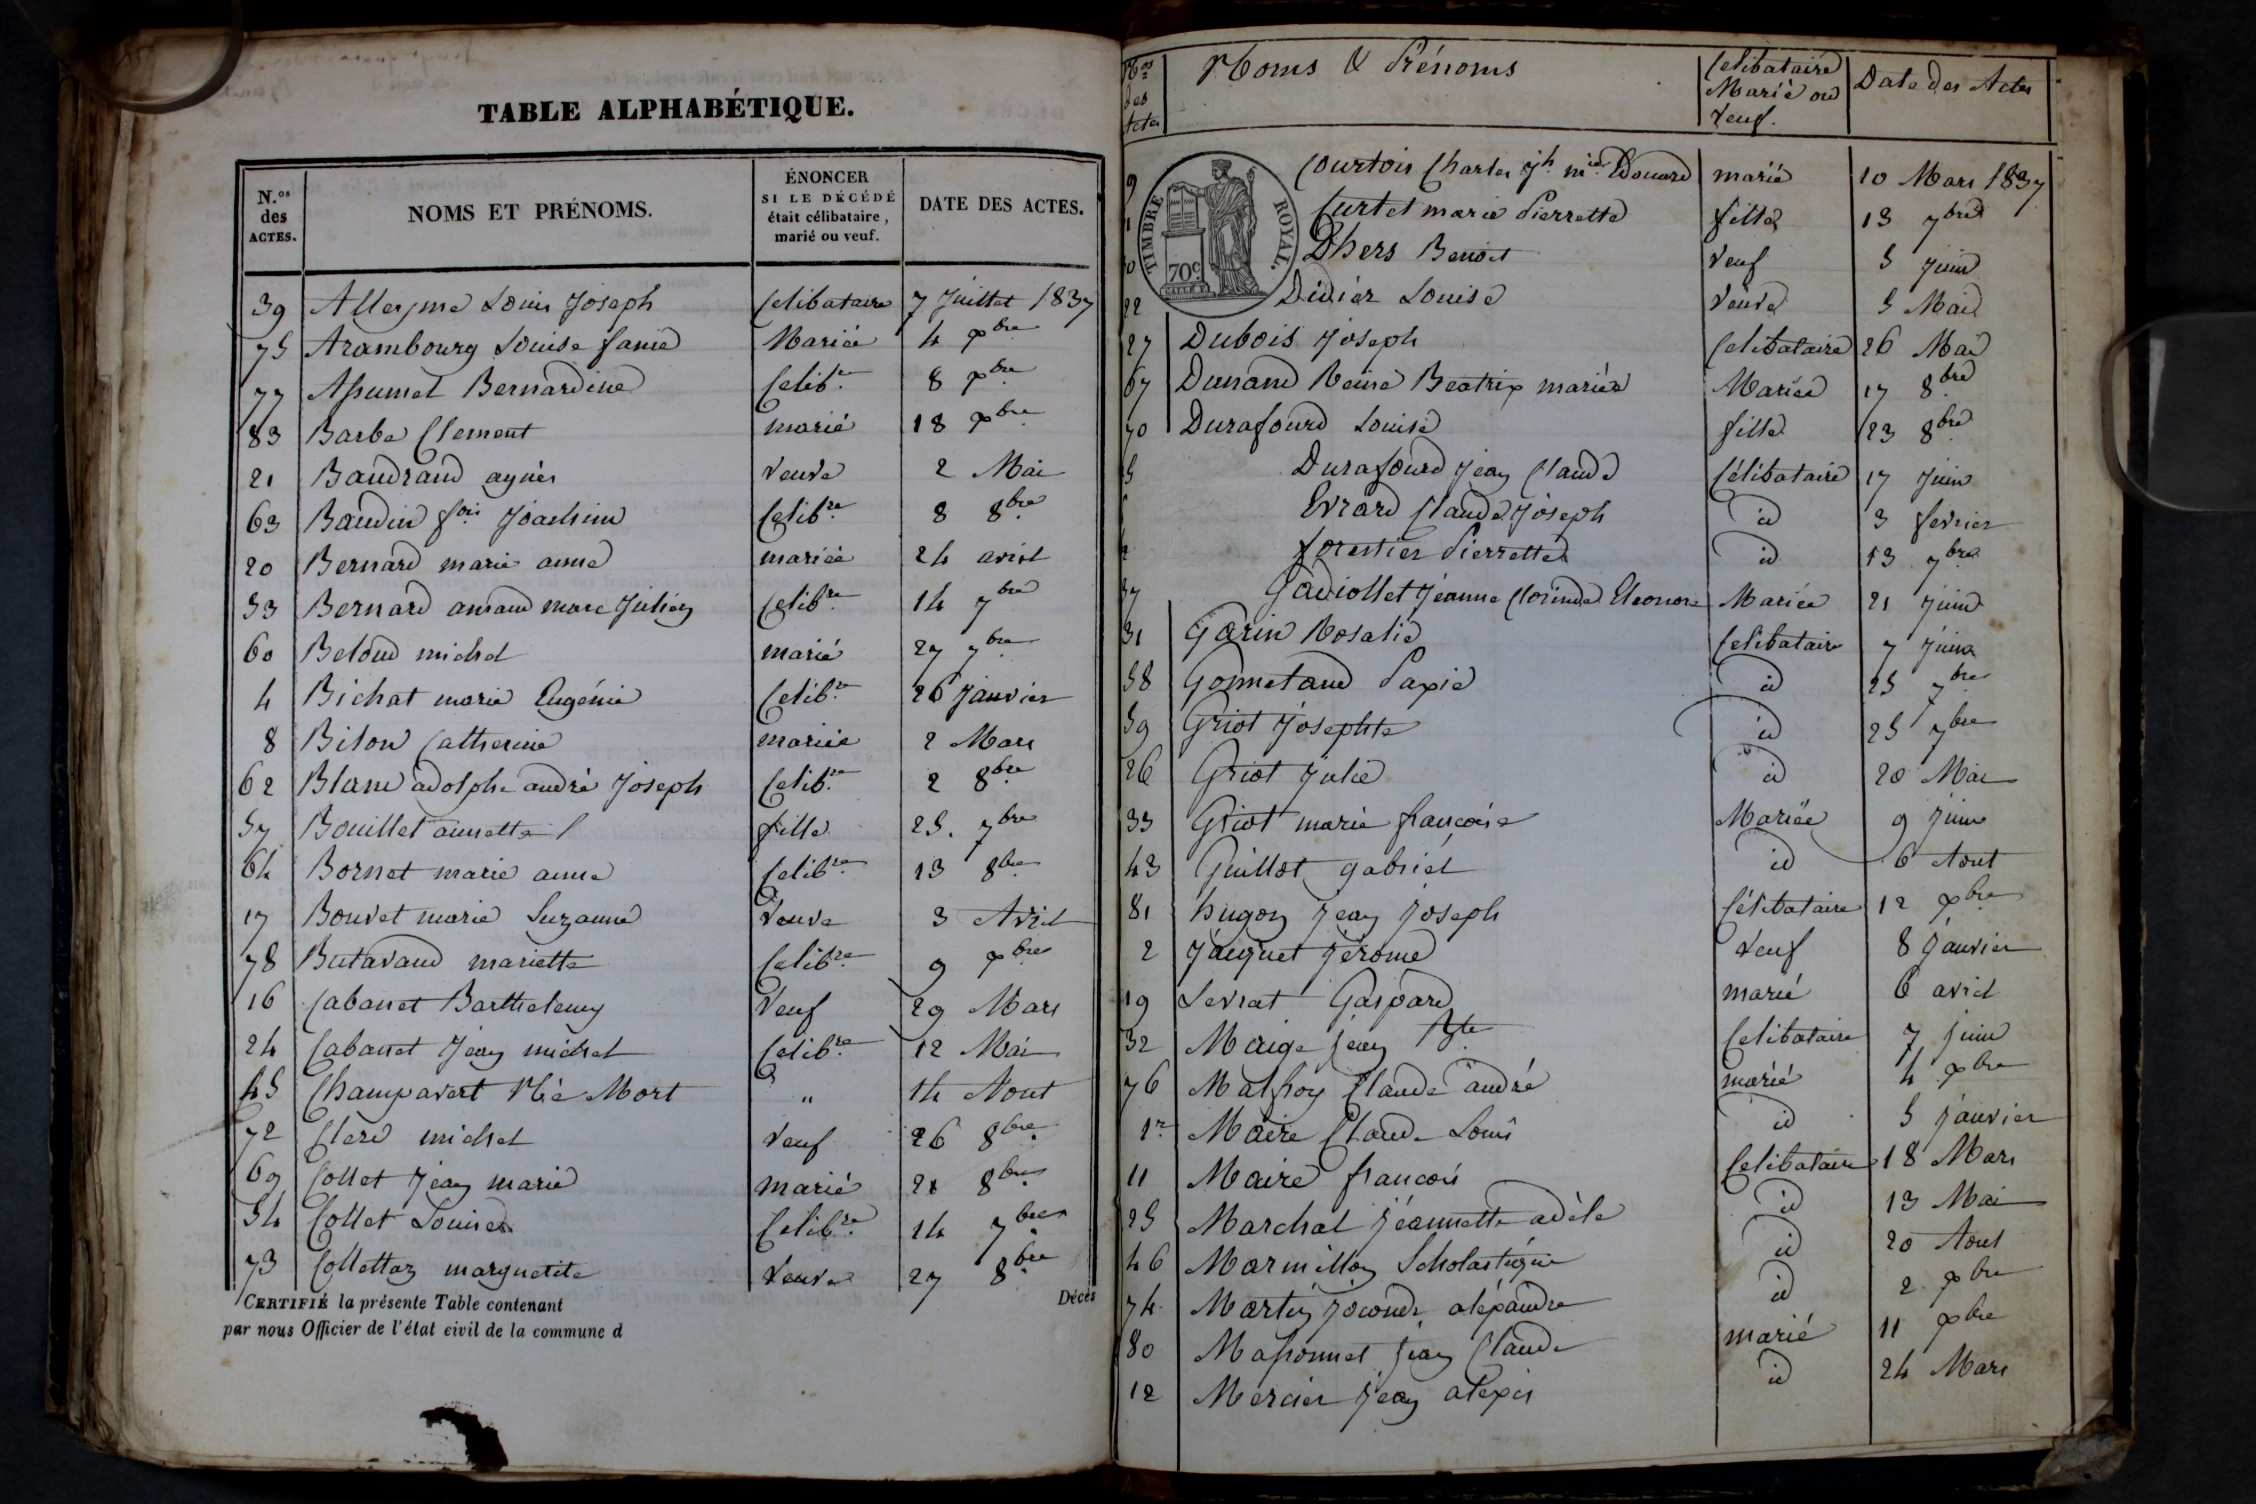 TABLE ALPHABÉTIQUE.
N.os des ACTES. NOMS ET PRÉNOMS. ÉNONCER SI LE DÉCÉDÉ était célibataire, marié ou veuf. DATE DES ACTES.
39 Allerme Louis Joseph Celibataire 7 Juillet 1837
75 Arambourg Louise fanie Mariée 4 xbre
77 Assumel Bernardine Celib.re 8 xbre
83 Barbe Clement marié 18 xbre
21 Baudrand agnès veuve 2 Mai
63 Baudin fois Joachim Celibre 8 8bre
20 Bernard marie anne mariée 24 avril
53 Bernard amand marc Julien Celib.re 14 7bre
60 Beloud michel marié 27 7bre
4 Bichat marie Eugénie Celib.re 26 Janvier
8 Biton Catherine mariée 2 Mars
62 Blanc adolphe andré Joseph Celib.re 2 8bre
57 Bouillet annette fille 25. 7bre
64 Bornet marie anne Celibre 13 8bre
17 Bouvet marie Suzanne Veuve 3 Avril
78 Butavand mariette Celibre 9 xbre
16 Cabanet Barthelemy Veuf 29 Mars
24 Cabanet Jean michel Celibre 12 Mai
45 Champavert Né Mort " 14 Aout
72 Clerc michel veuf 26 8bre
69 Collet Jean marie marié 21 8bre
54 Collet Louise Celibre 14 7bre
73 Collettaz marguerite veuve 27 8bre
CERTIFIÉ la présente Table contenant Décès
par nous Officier de l'état civil de la commune d
Nos des Actes Noms & Prénoms Celibataire Marié ou Veuf. Date des Actes
TIMBRE ROYAL. 70c
9 Courtois Charles Jh mie Edouard marié 10 Mars 1837
Curtet marie Pierrette fille 13 7bre
Dhers Benoit Veuf 5 Juin
22 Didier Louise Veuve 5 Mai
27 Dubois Joseph Celibataire 26 Mai
67 Dunand Reine Beatrix mariée Mariée 17 8bre
70 Durafourd Louise fille 23 8bre
5 Durafourd Jean Claude Célibataire 17 Juin
Evrard Claude Joseph id 3 fevrier
forestier Pierrette id 13 7bre
37 Gadiollet Jeanne Clorinde Eleonore Mariée 21 Juin
31 Garin Rosalie Celibataire 7 Juin
58 Gonnetand Paxie id 25 7bre
59 Griot Josephte id 25 7bre
26 Griot Julie id 20 Mai
33 Griot marie françoise Mariée 9 Juin
43 Guillot gabriel id 6 Aout
81 hugon Jean Joseph Célibataire 12 xbre
2 Jacquet Jérome veuf 8 Janvier
19 Levrat Gaspard marié 6 avril
32 Maige Jean Bte Celibataire 7 Juin
76 Malfroy Claude andré marié 4 xbre
1er Maire Claude Louis id 5 Janvier
11 Maire francois Celibataire 18 Mars
25 Marchal Jeannette adèle id 13 Mai
46 Marmillon Scholastique id 20 Aout
74 Martin Joconde aléxandre id 2 xbre
80 Massonnet Jean Claude marié 11 xbre
12 Mercier Jean alexis id 24 Mars